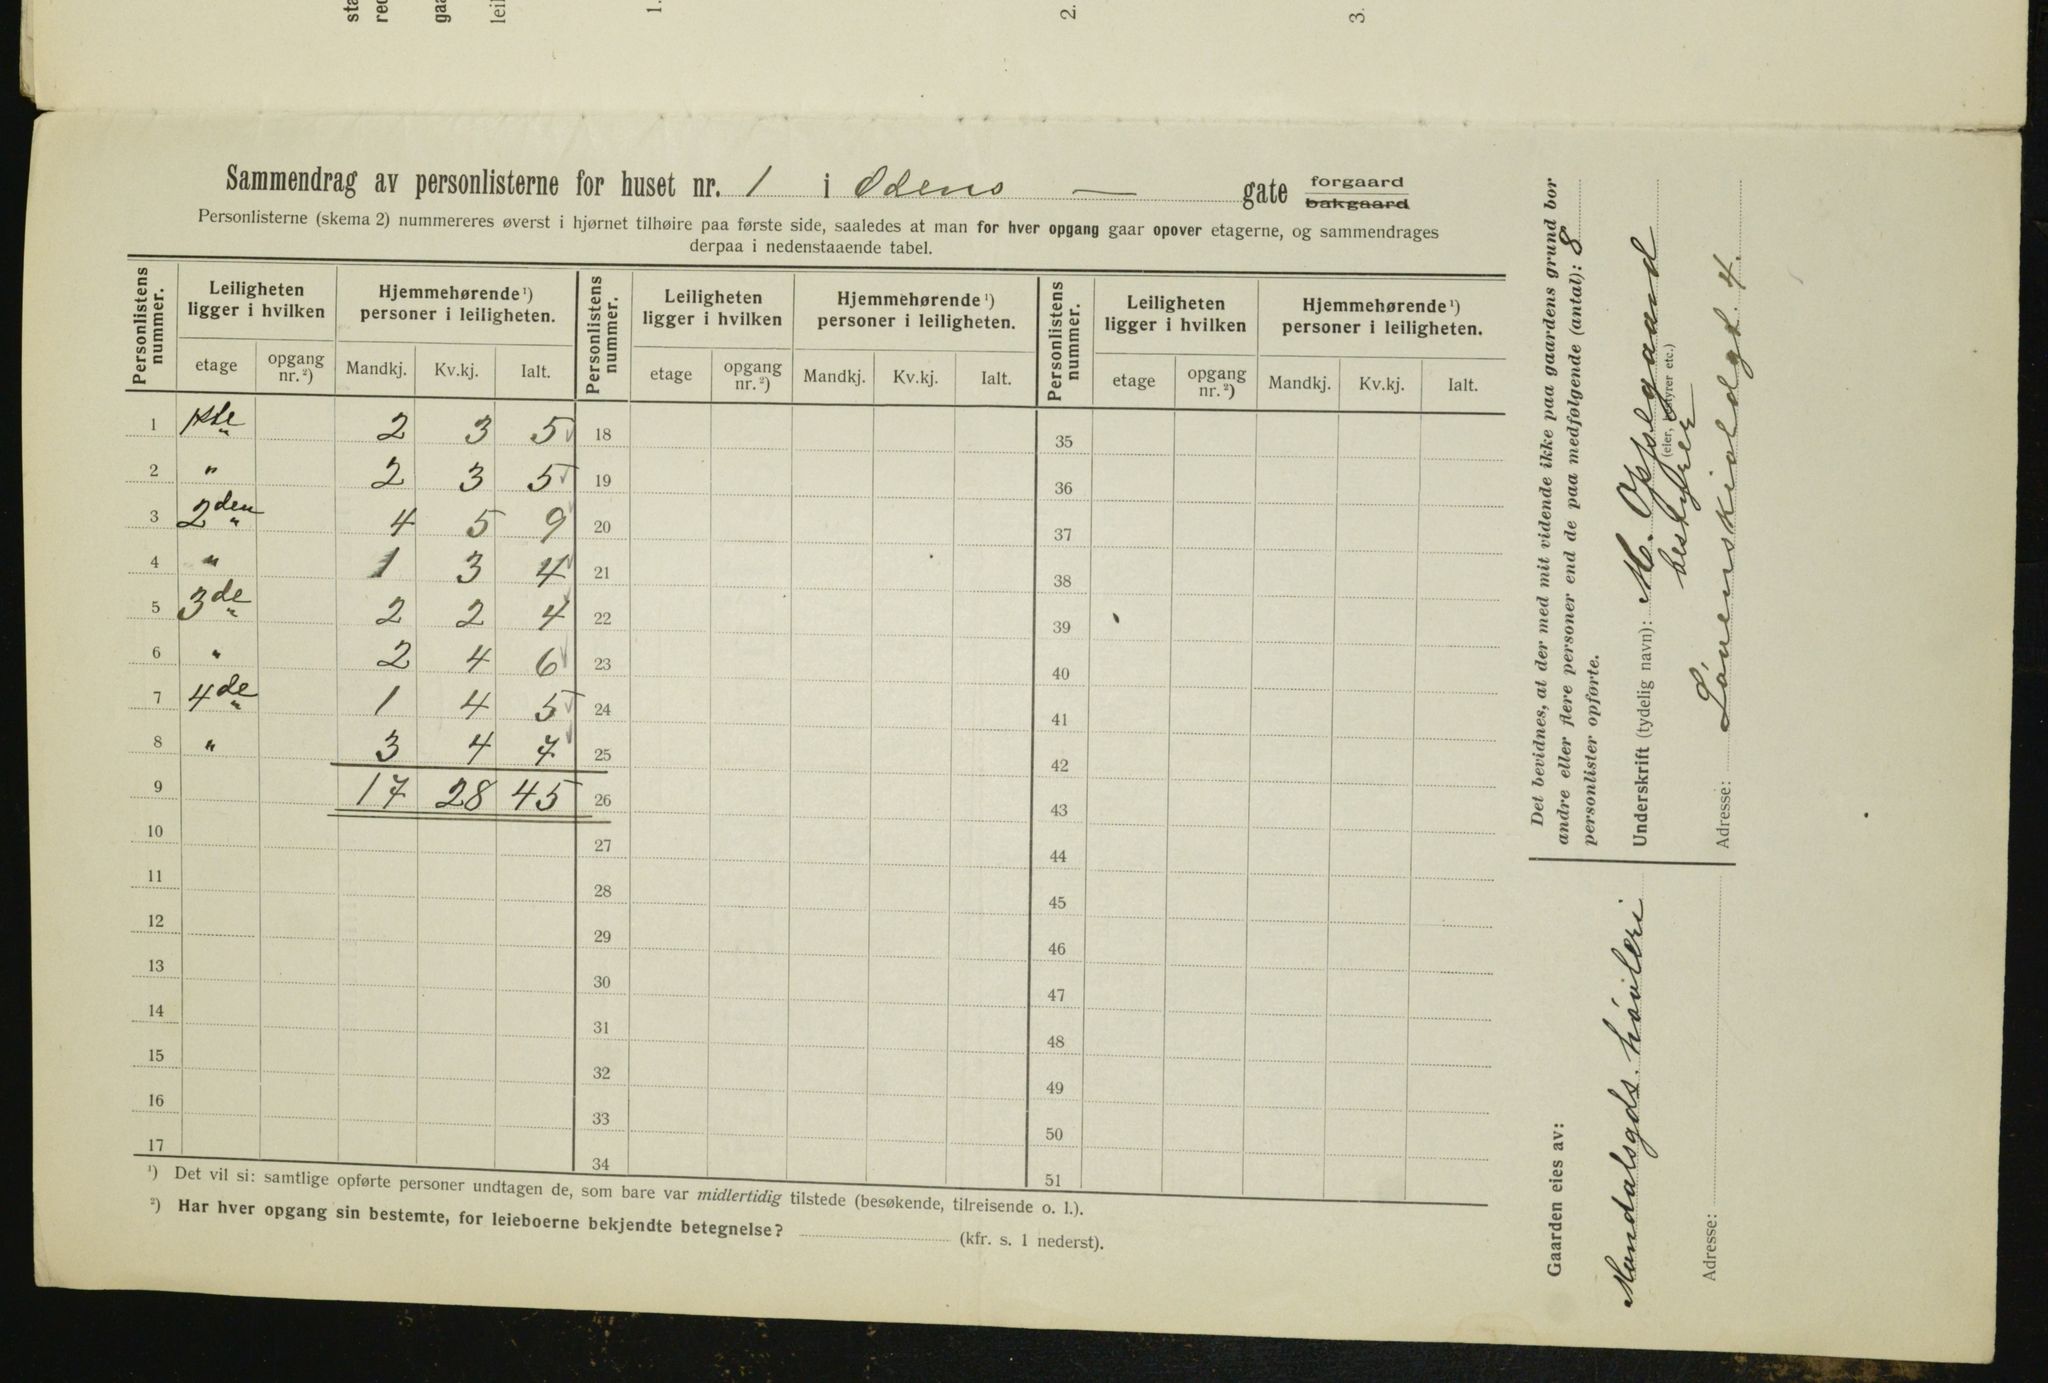 sta
red
gaa
leil
1.
2.
3.
Sammendrag av personlisterne for huset nr. 1 i Odens — gate forgaard bakgaard
Personlisterne (skema 2) nummereres øverst i hjørnet tilhøire paa første side, saaledes at man for hver opgang gaar opover etagerne, og sammendrages
derpaa i nedenstaaende tabel.
Personlistens nummer. Leiligheten ligger i hvilken Hjemmehørende ¹) personer i leiligheten. Personlistens nummer. Leiligheten ligger i hvilken Hjemmehørende ¹) personer i leiligheten. Personlistens nummer. Leiligheten ligger i hvilken Hjemmehørende ¹) personer i leiligheten.
etage opgang nr. ²) Mandkj. Kv.kj. Ialt. etage opgang nr. ²) Mandkj. Kv.kj. Ialt. etage opgang nr. ²) Mandkj. Kv.kj. Ialt.
1 1ste 2 3 5 18 35
2 " 2 3 5 19 36
3 2den 4 5 9 20 37
4 " 1 3 4 21 38
5 3de 2 2 4 22 39
6 " 2 4 6 23 40
7 4de 1 4 5 24 41
8 " 3 4 7 25 42
9 17 28 45 26 43
10 27 44
11 28 45
12 29 46
13 30 47
14 31 48
15 32 49
16 33 50
17 34 51
¹) Det vil si: samtlige opførte personer undtagen de, som bare var midlertidig tilstede (besøkende, tilreisende o. l.).
²) Har hver opgang sin bestemte, for leieboerne bekjendte betegnelse? (kfr. s. 1 nederst).
Det bevidnes, at der med mit vidende ikke paa gaardens grund bor
andre eller flere personer end de paa medfølgende (antal): 8
personlister opførte.
Underskrift (tydelig navn): M. Oppegaard
(eier, bestyrer etc.)
bestyrer
Adresse: Lövenskioldsgt 4.
Gaarden eies av:
Mandalsgds. høvleri
Adresse: